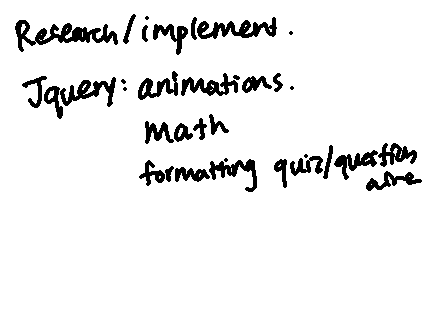 Research/implement.
Jquery: animations.
math
formatting quiz/question
aire